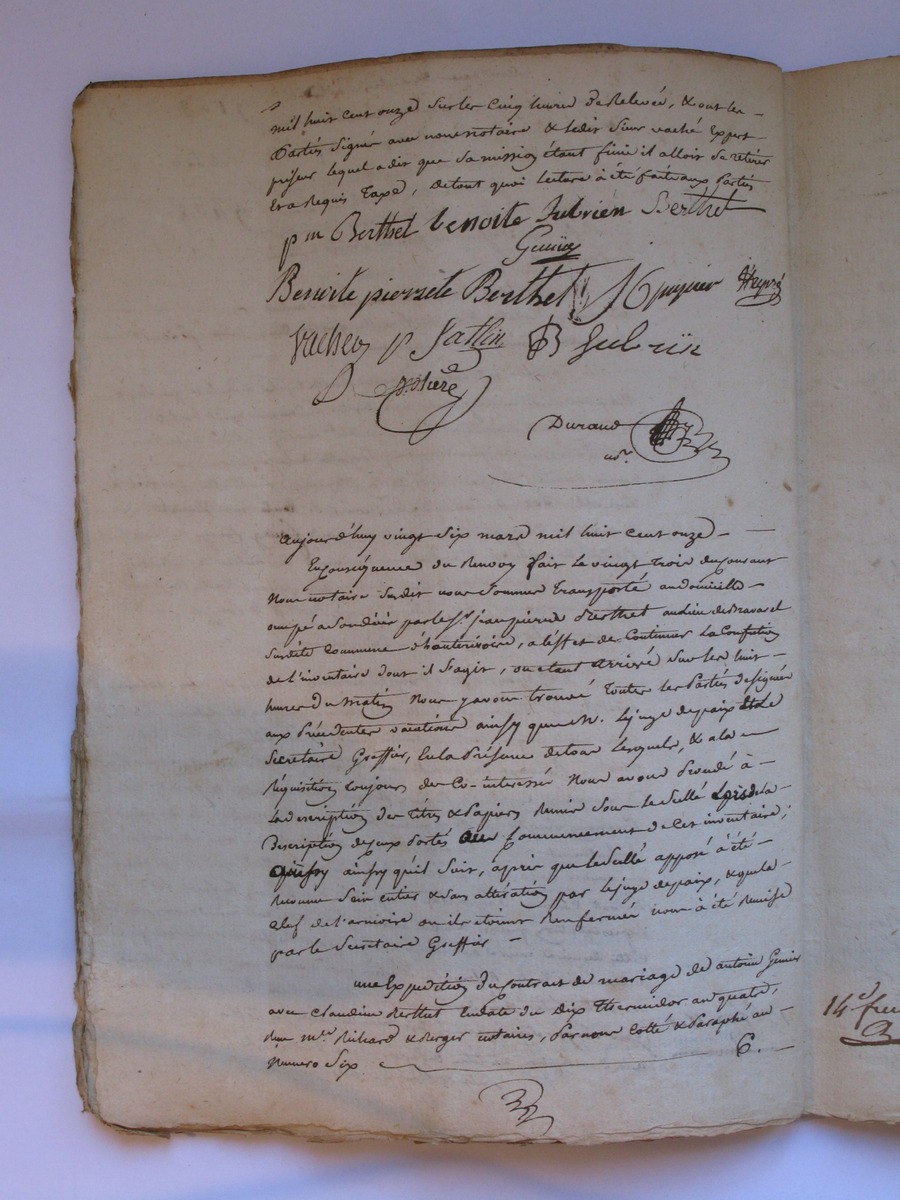 mil huit cent onze sur les cinq heures de Relevée, & ont les
Parties signé avec nous notaire & ledit sieur vaché Expert
priseur lequel a dit que sa mission étant finie il alloit se retirer
Et a Requis Taxe, de tout quoi lecture a été faite aux Parties
pre Berthet benoite Jubrien Berthet
Genin
Benoite pierrete Berthet
vacher p
B Jubriin
Durand
nore
Aujourd'huy vingt Six mars mil huit cent onze
En conséquence du Renvoy fait le vingt trois du courant
Nous notaire Susdit nous sommes transporté au domicille
occupé a Son décès par le Sr. jean pierre Berthet au lieu de
Susdite Commune d'hauterivoire, a l'effet de Continuer la Confection
de l'inventaire dont il s'agit, ou étant Arrivé sur les huit
heures du matin Nous y avons trouvé Toutes les Parties designées
aux Précédentes vacations ainsy que M. le juge de paix et le
Secrétaire Greffier, En la Présence de tous lesquels, & a la
Réquisition toujours des Co-interessés Nous avons Procédé à
la description des Titres & Papiers Remis sous le scellé Lors de la
Description d'iceux Portés au Commencement de cet inventaire,
ainsy qu'il Suit, après que le scellé apposé a été
Reconnu Sain entier & Sans altération par le juge de paix, & que la
clef de l'armoire ou ils etoient Renfermés nous a été Remise
par le Secretaire Greffier
une Expédition du Contrat de mariage de antoine Genin
avec Claudine Berthet En date du dix Thermidor an quatre,
Reçu mes. Richard & Berger notaires, Par nous Cotté & Paraphé au
Numero Six 6.
14e. feu